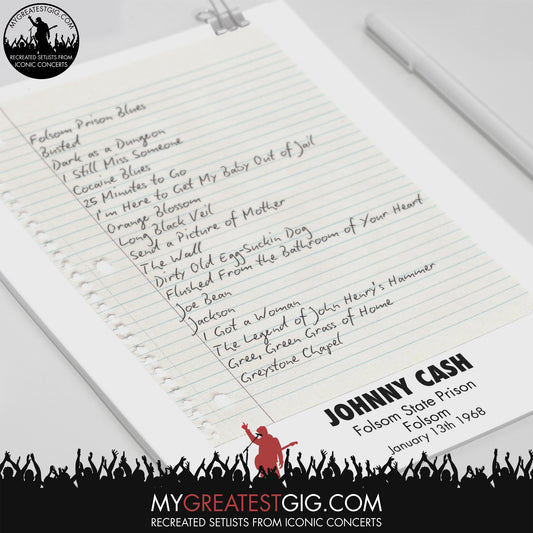 MYGREATESTGIG.COM
RECREATED SETLISTS FROM
ICONIC CONCERTS
Folsom Prison Blues
Busted
Dark as a Dungeon
I Still Miss Someone
Cocaine Blues
25 Minutes to Go
I'm Here to Get My Baby Out of Jail
Orange Blossom
Long Black Veil
Send a Picture of Mother
The Wall
Dirty Old Egg-Suckin Dog
Flushed From the Bathroom of Your Heart
Joe Bean
Jackson
I Got a Woman
The Legend of John Henry's Hammer
Green, Green Grass of Home
Greystone Chapel
JOHNNY CASH
Folsom State Prison
Folsom
January 13th 1968
MYGREATESTGIG.COM
RECREATED SETLISTS FROM ICONIC CONCERTS